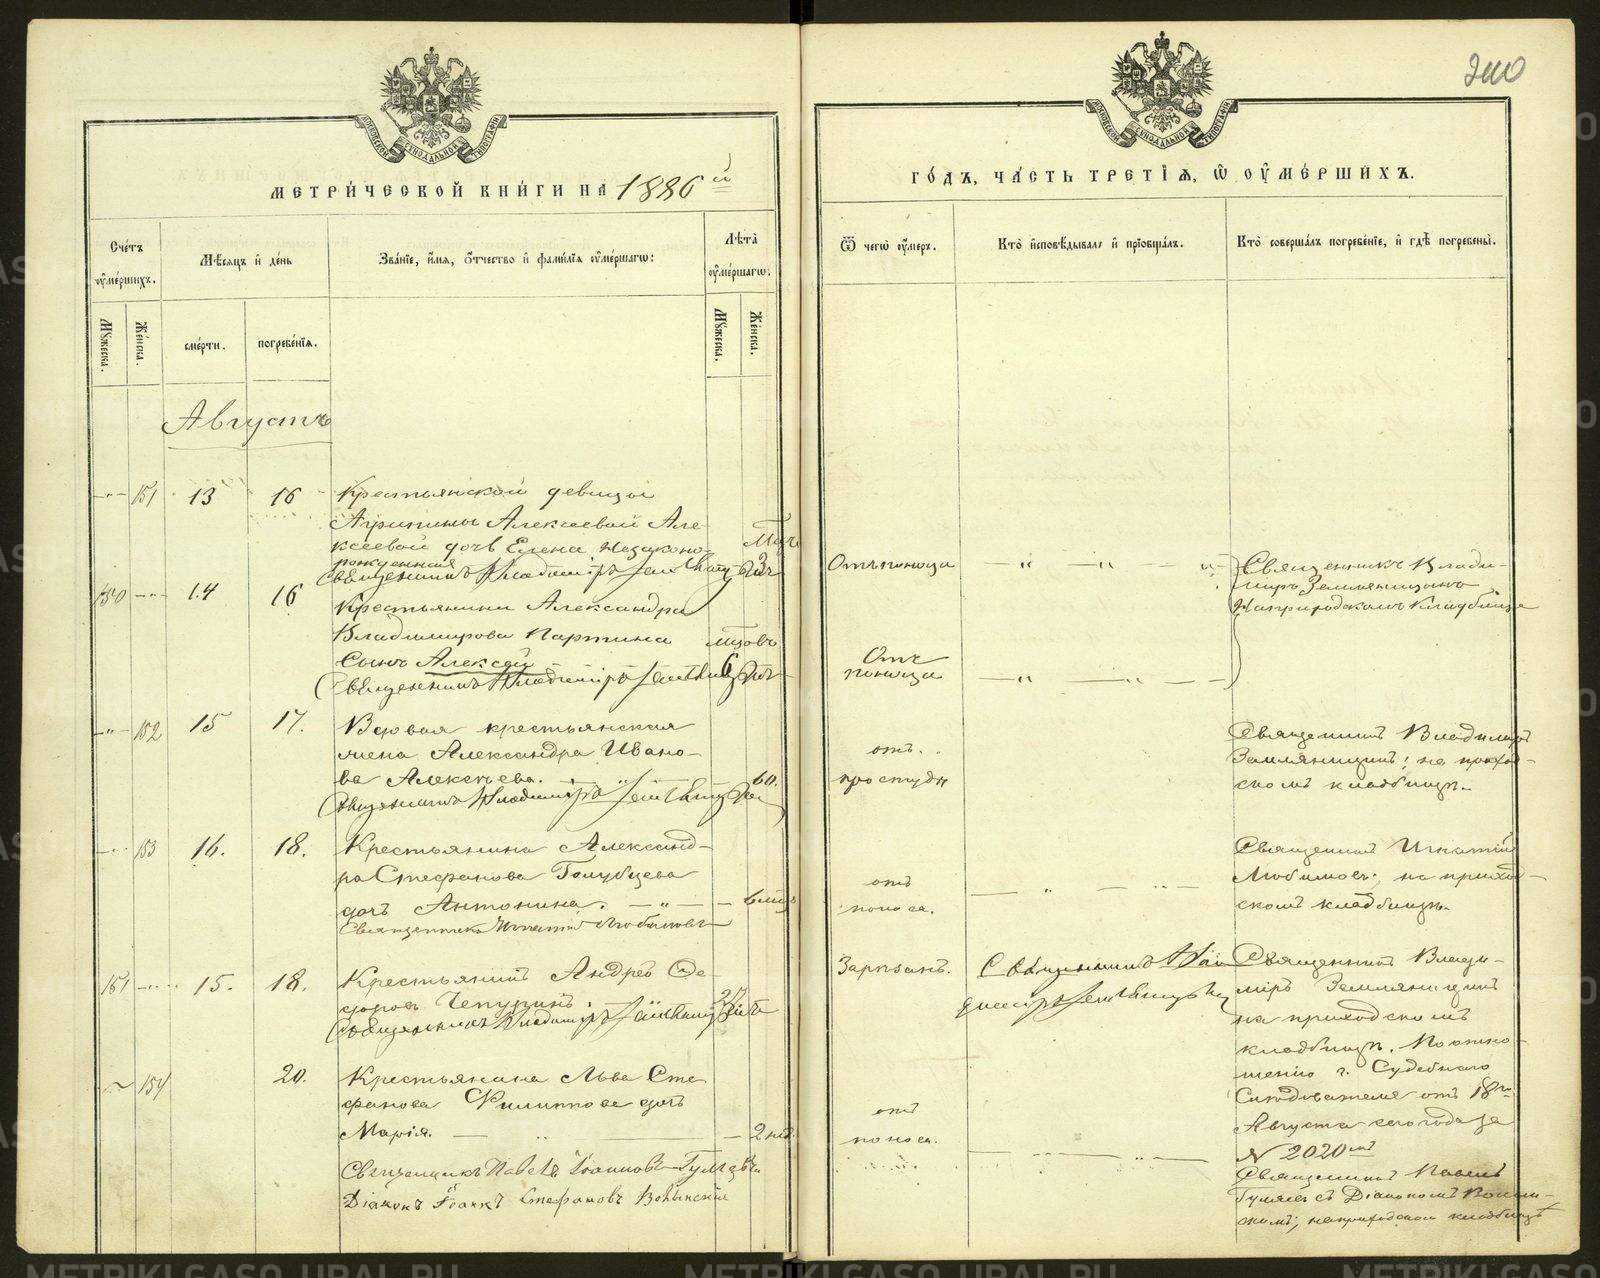 МЕТРИ́ЧЕСКОЙ КНИ́ГИ НА 1886 й
Сче́тъ оумéршихъ.
Мꙋ́жеска.
Же́нска.
Мѣ́сяцъ и де́нь
сме́рти.
погребе́нїѧ.
Зва́нїе, и́мѧ, о́тчество и фами́лїѧ оуме́ршагѡ:
Лѣ́та оуме́ршагѡ:
Мꙋ́жеска.
Же́нска.
Августъ
-"- 151 13 16 Крестьянской девицы
Агрипины Алексеевой Але-
ксеевой дочь Елена незаконо-
рожденная
3
Священникъ Владиміръ Земляницынъ
150 -"- 14 16 Крестьянина Александра
Владимирова Партина
сынъ Алексей
6
Священникъ Владиміръ Земляницынъ
-"- 152 15 17. Вдовая крестьянская
жена Александра Ивано-
ва Алексѣева. 60.
Священникъ Владиміръ Земляницынъ
-"- 153 16. 18. Крестьянина Александ-
ра Стефанова Голубцева
дочь Антонина. - " -
Священникъ Игнатій Любимовъ
151 -"- 15. 18. Крестьянинъ Андрей Ѳе-
доровъ Чепуринъ. 27
Священникъ Владиміръ Земляницынъ
154 20. Крестьянина Льва Сте
фанова Филиппова дочь
Марія. 2 нед.
Священникъ Павелъ Іоанновъ Гуляевъ
Діаконъ Стефановъ Волынскій
ГО́ДЪ, ЧА́СТЬ ТРЕ́ТЇѦ, Ѡ ОУМЕ́РШИХЪ.
Ѿ чегѡ̀ оу́меръ.
Кто̀ и́сповѣ́дывалъ и прїѡбща́лъ.
Кто̀ соверша́лъ погребе́нїе, и гдѣ̀ погребены̀.
Отъ поноса
Священникъ Влади-
миръ Земляницынъ
На приходскомъ кладбище
Отъ
поноса
отъ
простуды
Священникъ Владимиръ
Земляницынъ; на приход-
скомъ кладбищѣ.
отъ
поноса.
Священникъ Игнатій
Любимовъ; на приход-
скомъ кладбищѣ.
Зарѣзанъ.
Священникъ Вла
диміръ Земляницынъ
Священникъ Влади-
міръ Земляницынъ
на приходскомъ
кладбищѣ. По отно-
шенію г. Судебнаго
Слѣдователя отъ 18го
Августа сего года за
№ 2020мъ
отъ
поноса.
Священникъ Павелъ
Гуляевъ съ Діакономъ Волын-
скимъ; на приходском кладбищѣ